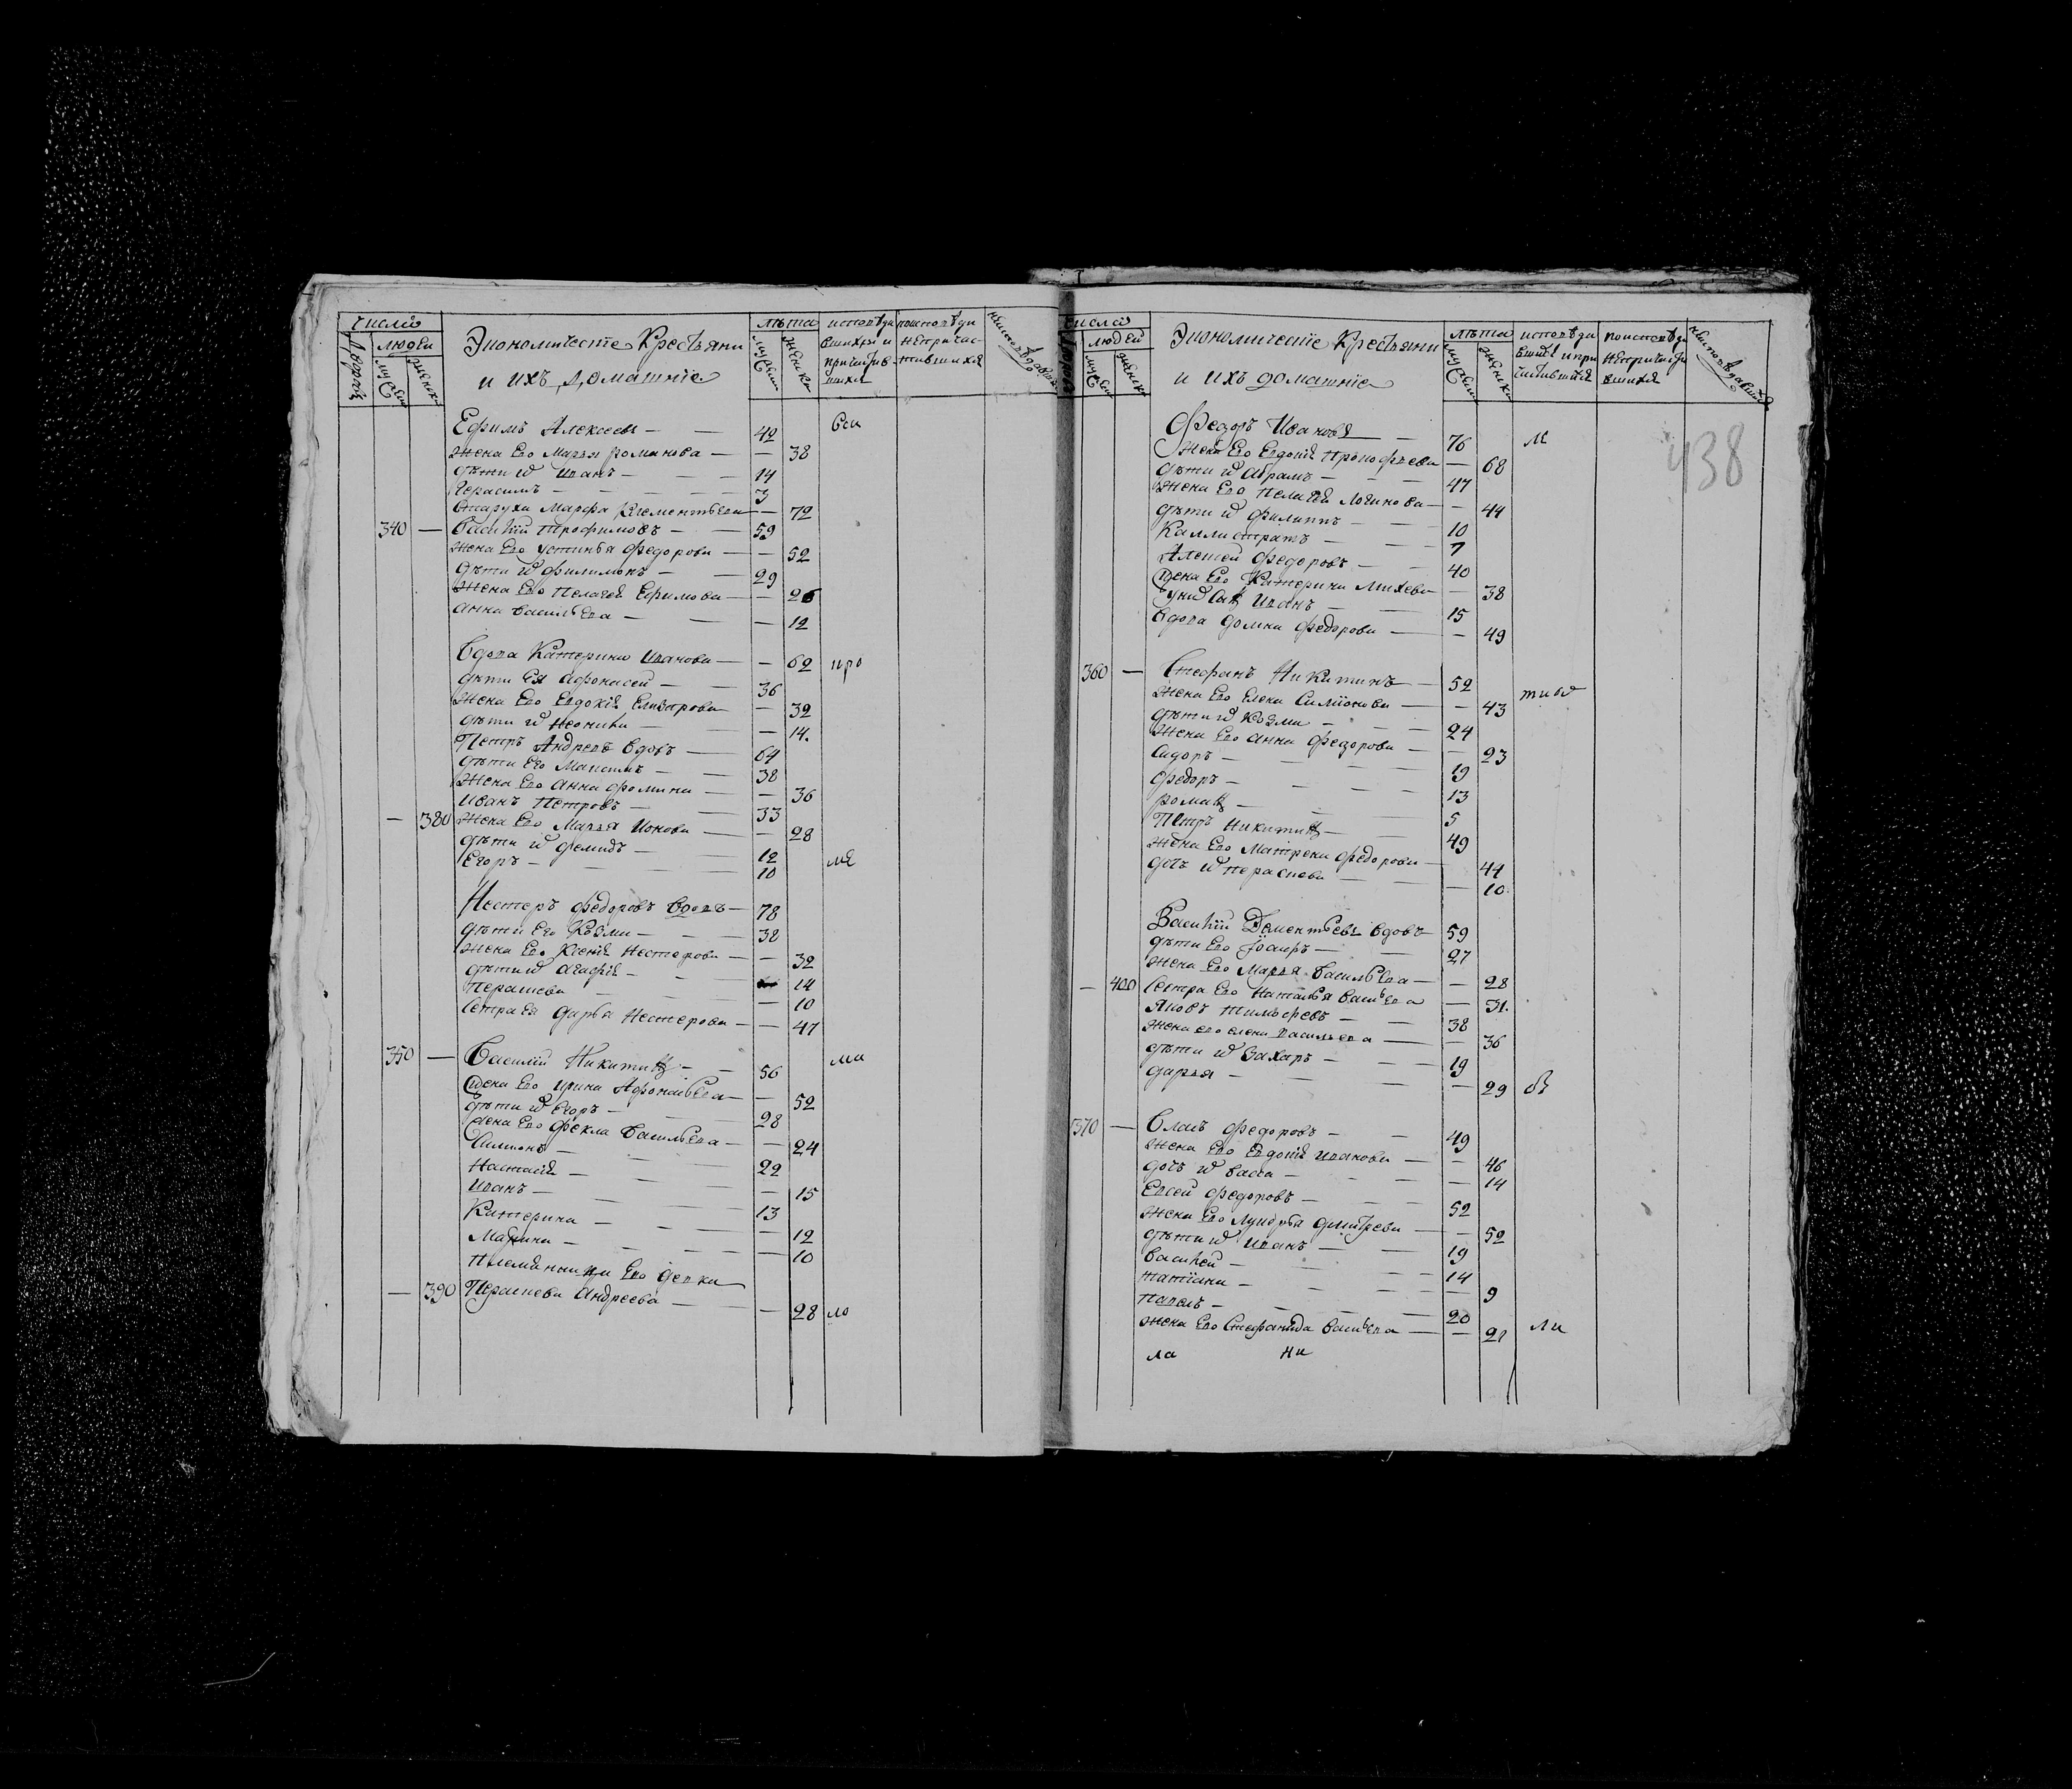 числа
людей
дворовъ
мужеск
женска
Экономическiе Крестьяни
и ихъ домашнiе
лѣта
мужеск
женска
Ефимъ Алексеевъ — 42 вси
жена Ево Марья романова — 38
дѣти ихъ Иванъ — 14
Герасимъ — 3
Старуха Марфа Клементьева — 72
340 — Василiй трофимовъ — 59
жена Ево устинья федорова — 52
дѣти ихъ филимонъ — 29
жена Ево Пелагея Ефимова — 26
анна васильева — 12
Вдова Катерина Иванова — 62 про
дѣти Ея афонасей — 36
жена Ево Евдокiя Елизарова — 32
дѣти ихъ Неонила — 14.
Петръ Андреевъ вдовъ — 64
дѣти Его Максимъ — 38
жена Ево анна фомина — 36
Иванъ Петровъ — 33
— 380 жена Ево Марья Ионова — 28
дѣти ихъ 12
Егоръ — 10 ме
Нестеръ федоровъ вдовъ — 78
дѣти Его Козма — 38
жена Ево Ксенiя Нестерова — 32
дѣти ихъ агафiя — 14
Парасковa — 10
Сестра Ея дарья Нестерова — 47
350 — Василiй Никитинъ — 56 ма
жена Ево ирина Афонасьева — 52
дѣти ихъ Егоръ — 28
жена Ево фекла васильева — 24
Симионъ — 22
Настасiя — 15
Иванъ — 13
Катерина — 12
Марина — 10
Племянница Ево девка
— 390 Парасковa андреева — 28 ло
числа
людей
дворовъ
мужеск
женска
Экономическiе Крестьяни
и ихъ домашнiе
лѣта
мужеск
женска
438
Федоръ Ивановъ — 76 м
жена Ево Евдокiя Прокофьева — 68
дѣти ихъ Абрамъ — 47
жена Ево Пелагея Логинова — 44
дѣти ихъ филиппъ — 10
Каллистратъ — 7
Алексей федоровъ — 40
жена Ево Катерина Михеева — 38
у них сынъ Иванъ — 15
вдова домна федорова — 49
360 — Стефанъ Никитинъ — 52
жена Ево Елена Симiонова — 43
дѣти ихъ Козма — 24
жена Ево анна федорова — 23
сидоръ — 19
федоръ — 13
романъ — 5
Петръ Никитинъ — 49
жена Ево Матрена федорова — 44
дочь ихъ Парасковa — 10.
Василiй Дементьевъ вдовъ — 59
дѣти Ево 27
жена Ево Марья васильева — 28
— 400 Сестра Ево Наталья васильева — 31.
Яковъ тимофеевъ — 38
жена ево елена васильева — 36
дѣти ихъ Захаръ — 19
дарья — 29
370 — Власъ федоровъ — 49
жена Ево Евдокiя иванова — 46
дочь ихъ васса — 14
Евсей федоровъ — 52
жена Ево Лукерья дмитрева — 52
дѣти ихъ Иванъ — 19
василей — 14
татiана — 9
Павелъ — 20
жена Ево Стефанида васильева — 21 ли
ла ни